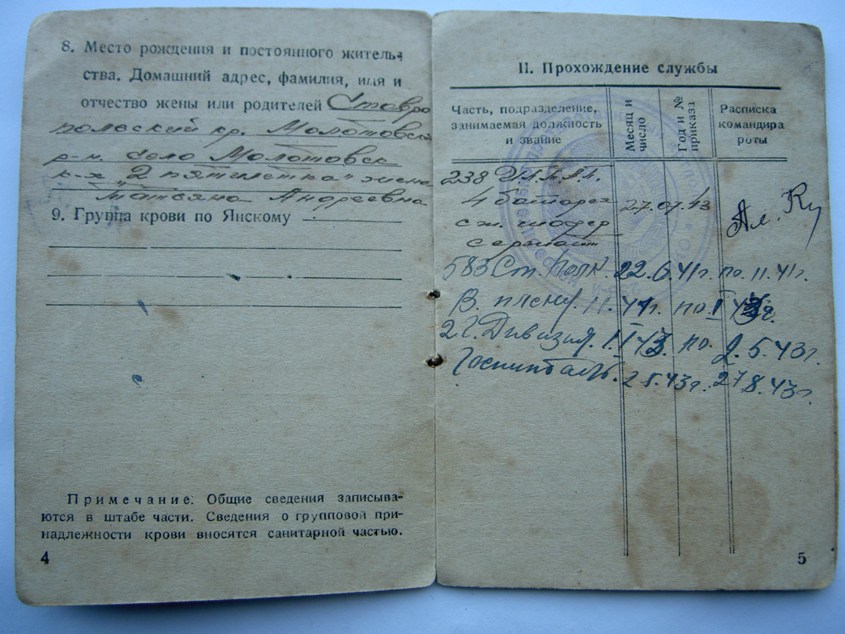 8. Место рождения и постоянного житель-
ства. Домашний адрес, фамилия, имя и
отчество жены или родителей Ставро
польский кр. Молотовский
р-н. село Молотовск
к-з "2 пятилетка" жена
Татьяна Андреевна
9. Группа крови по Янскому
Примечание. Общие сведения записыва-
ются в штабе части. Сведения о групповой при-
надлежности крови вносятся санитарной частью.
4
II. Прохождение службы
Часть, подразделение, занимаемая должность и звание
Месяц и число
Год и № приказа
Расписка командира роты
238
4 батарея 27.07.43
ст. шофер
сержант
583 Ст. полк. 22.6.41г. по 11.41г.
В. плену. 11.41г. по I 43г.
2 Г. Дивизия. I 43. по 2.5.43г.
Госпиталь. 2 5.43г. 27 8.43г.
5